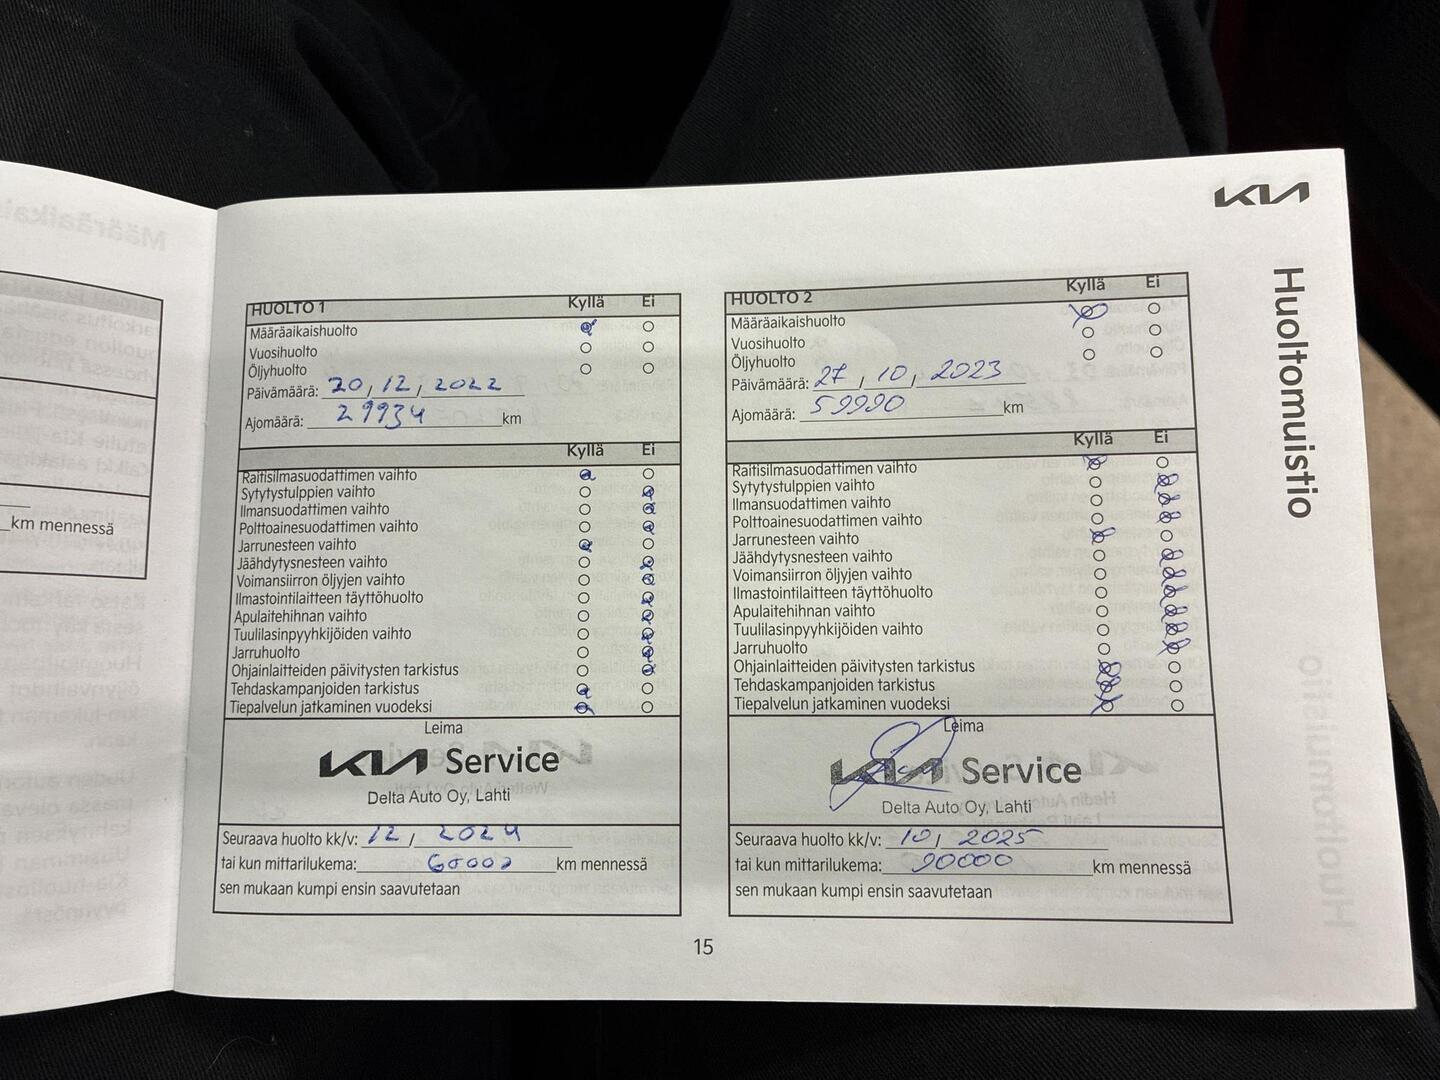 KIA
Huoltomuistio
km mennessä
HUOLTO 1 Kyllä Ei
Määräaikaishuolto
Vuosihuolto
Öljyhuolto
Päivämäärä: 20, 12, 2022
Ajomäärä: 29934 km
Kyllä Ei
Raitisilmasuodattimen vaihto
Sytytystulppien vaihto
Ilmansuodattimen vaihto
Polttoainesuodattimen vaihto
Jarrunesteen vaihto
Jäähdytysnesteen vaihto
Voimansiirron öljyjen vaihto
Ilmastointilaitteen täyttöhuolto
Apulaitehihnan vaihto
Tuulilasinpyyhkijöiden vaihto
Jarruhuolto
Ohjainlaitteiden päivitysten tarkistus
Tehdaskampanjoiden tarkistus
Tiepalvelun jatkaminen vuodeksi
Leima
KIA Service
Delta Auto Oy, Lahti
Seuraava huolto kk/v: 12 / 2024
tai kun mittarilukema: 60000 km mennessä
sen mukaan kumpi ensin saavutetaan
HUOLTO 2 Kyllä Ei
Määräaikaishuolto
Vuosihuolto
Öljyhuolto
Päivämäärä: 27 / 10, 2023
Ajomäärä: 59990 km
Kyllä Ei
Raitisilmasuodattimen vaihto
Sytytystulppien vaihto
Ilmansuodattimen vaihto
Polttoainesuodattimen vaihto
Jarrunesteen vaihto
Jäähdytysnesteen vaihto
Voimansiirron öljyjen vaihto
Ilmastointilaitteen täyttöhuolto
Apulaitehihnan vaihto
Tuulilasinpyyhkijöiden vaihto
Jarruhuolto
Ohjainlaitteiden päivitysten tarkistus
Tehdaskampanjoiden tarkistus
Tiepalvelun jatkaminen vuodeksi
Leima
KIA Service
Delta Auto Oy, Lahti
Seuraava huolto kk/v: 10, 2025
tai kun mittarilukema: 90000 km mennessä
sen mukaan kumpi ensin saavutetaan
15